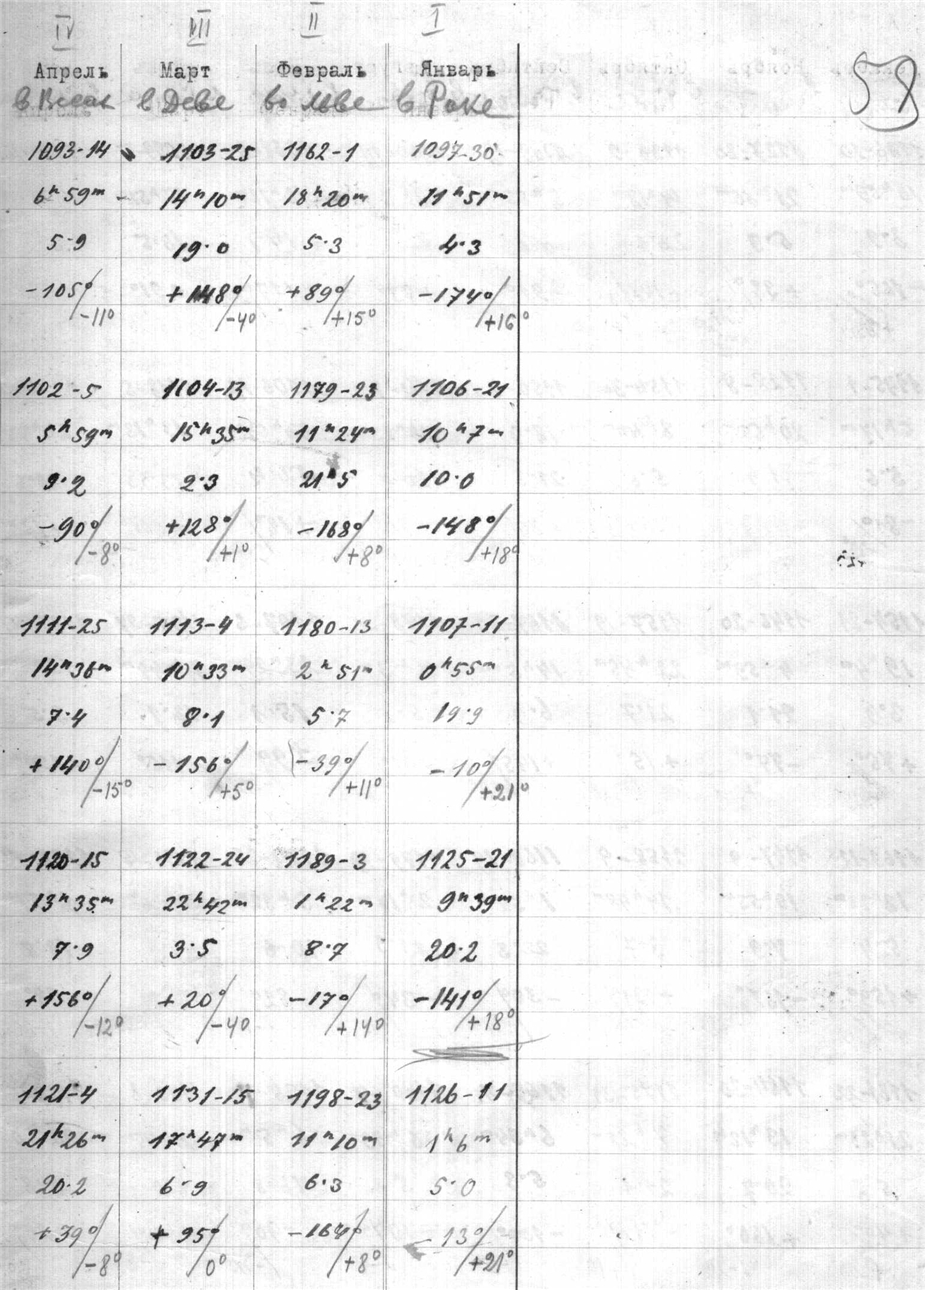 IV III II I
58
Апрель Март Февраль Январь
в Весах в Деве во Льве в Раке
1093-14 1103-25 1162-1 1097-30
6ʰ59ᵐ 14ʰ10ᵐ 18ʰ20ᵐ 11ʰ51ᵐ
5·9 19·0 5·3 4·3
-105°/-11° +148°/-4° +89°/+15° -174°/+16°
1102-5 1104-13 1179-23 1106-21
5ʰ59ᵐ 15ʰ35ᵐ 11ʰ24ᵐ 10ʰ7ᵐ
9·2 2·3 21·5 10·0
-90°/-8° +128°/+1° -168°/+8° -148°/+18°
1111-25 1113-4 1180-13 1107-11
14ʰ36ᵐ 10ʰ33ᵐ 2ʰ51ᵐ 0ʰ55ᵐ
7·4 8·1 5·7 19·9
+140°/-15° -156°/+5° -39°/+11° -10°/+21°
1120-15 1122-24 1189-3 1125-21
13ʰ35ᵐ 22ʰ42ᵐ 1ʰ22ᵐ 9ʰ39ᵐ
7·9 3·5 8·7 20·2
+156°/-12° +20°/-4° -17°/+14° -141°/+18°
1121-4 1131-15 1198-23 1126-11
21ʰ26ᵐ 17ʰ47ᵐ 11ʰ10ᵐ 1ʰ6ᵐ
20·2 6·9 6·3 5·0
+39°/-8° +95°/0° -164°/+8° -13°/+21°